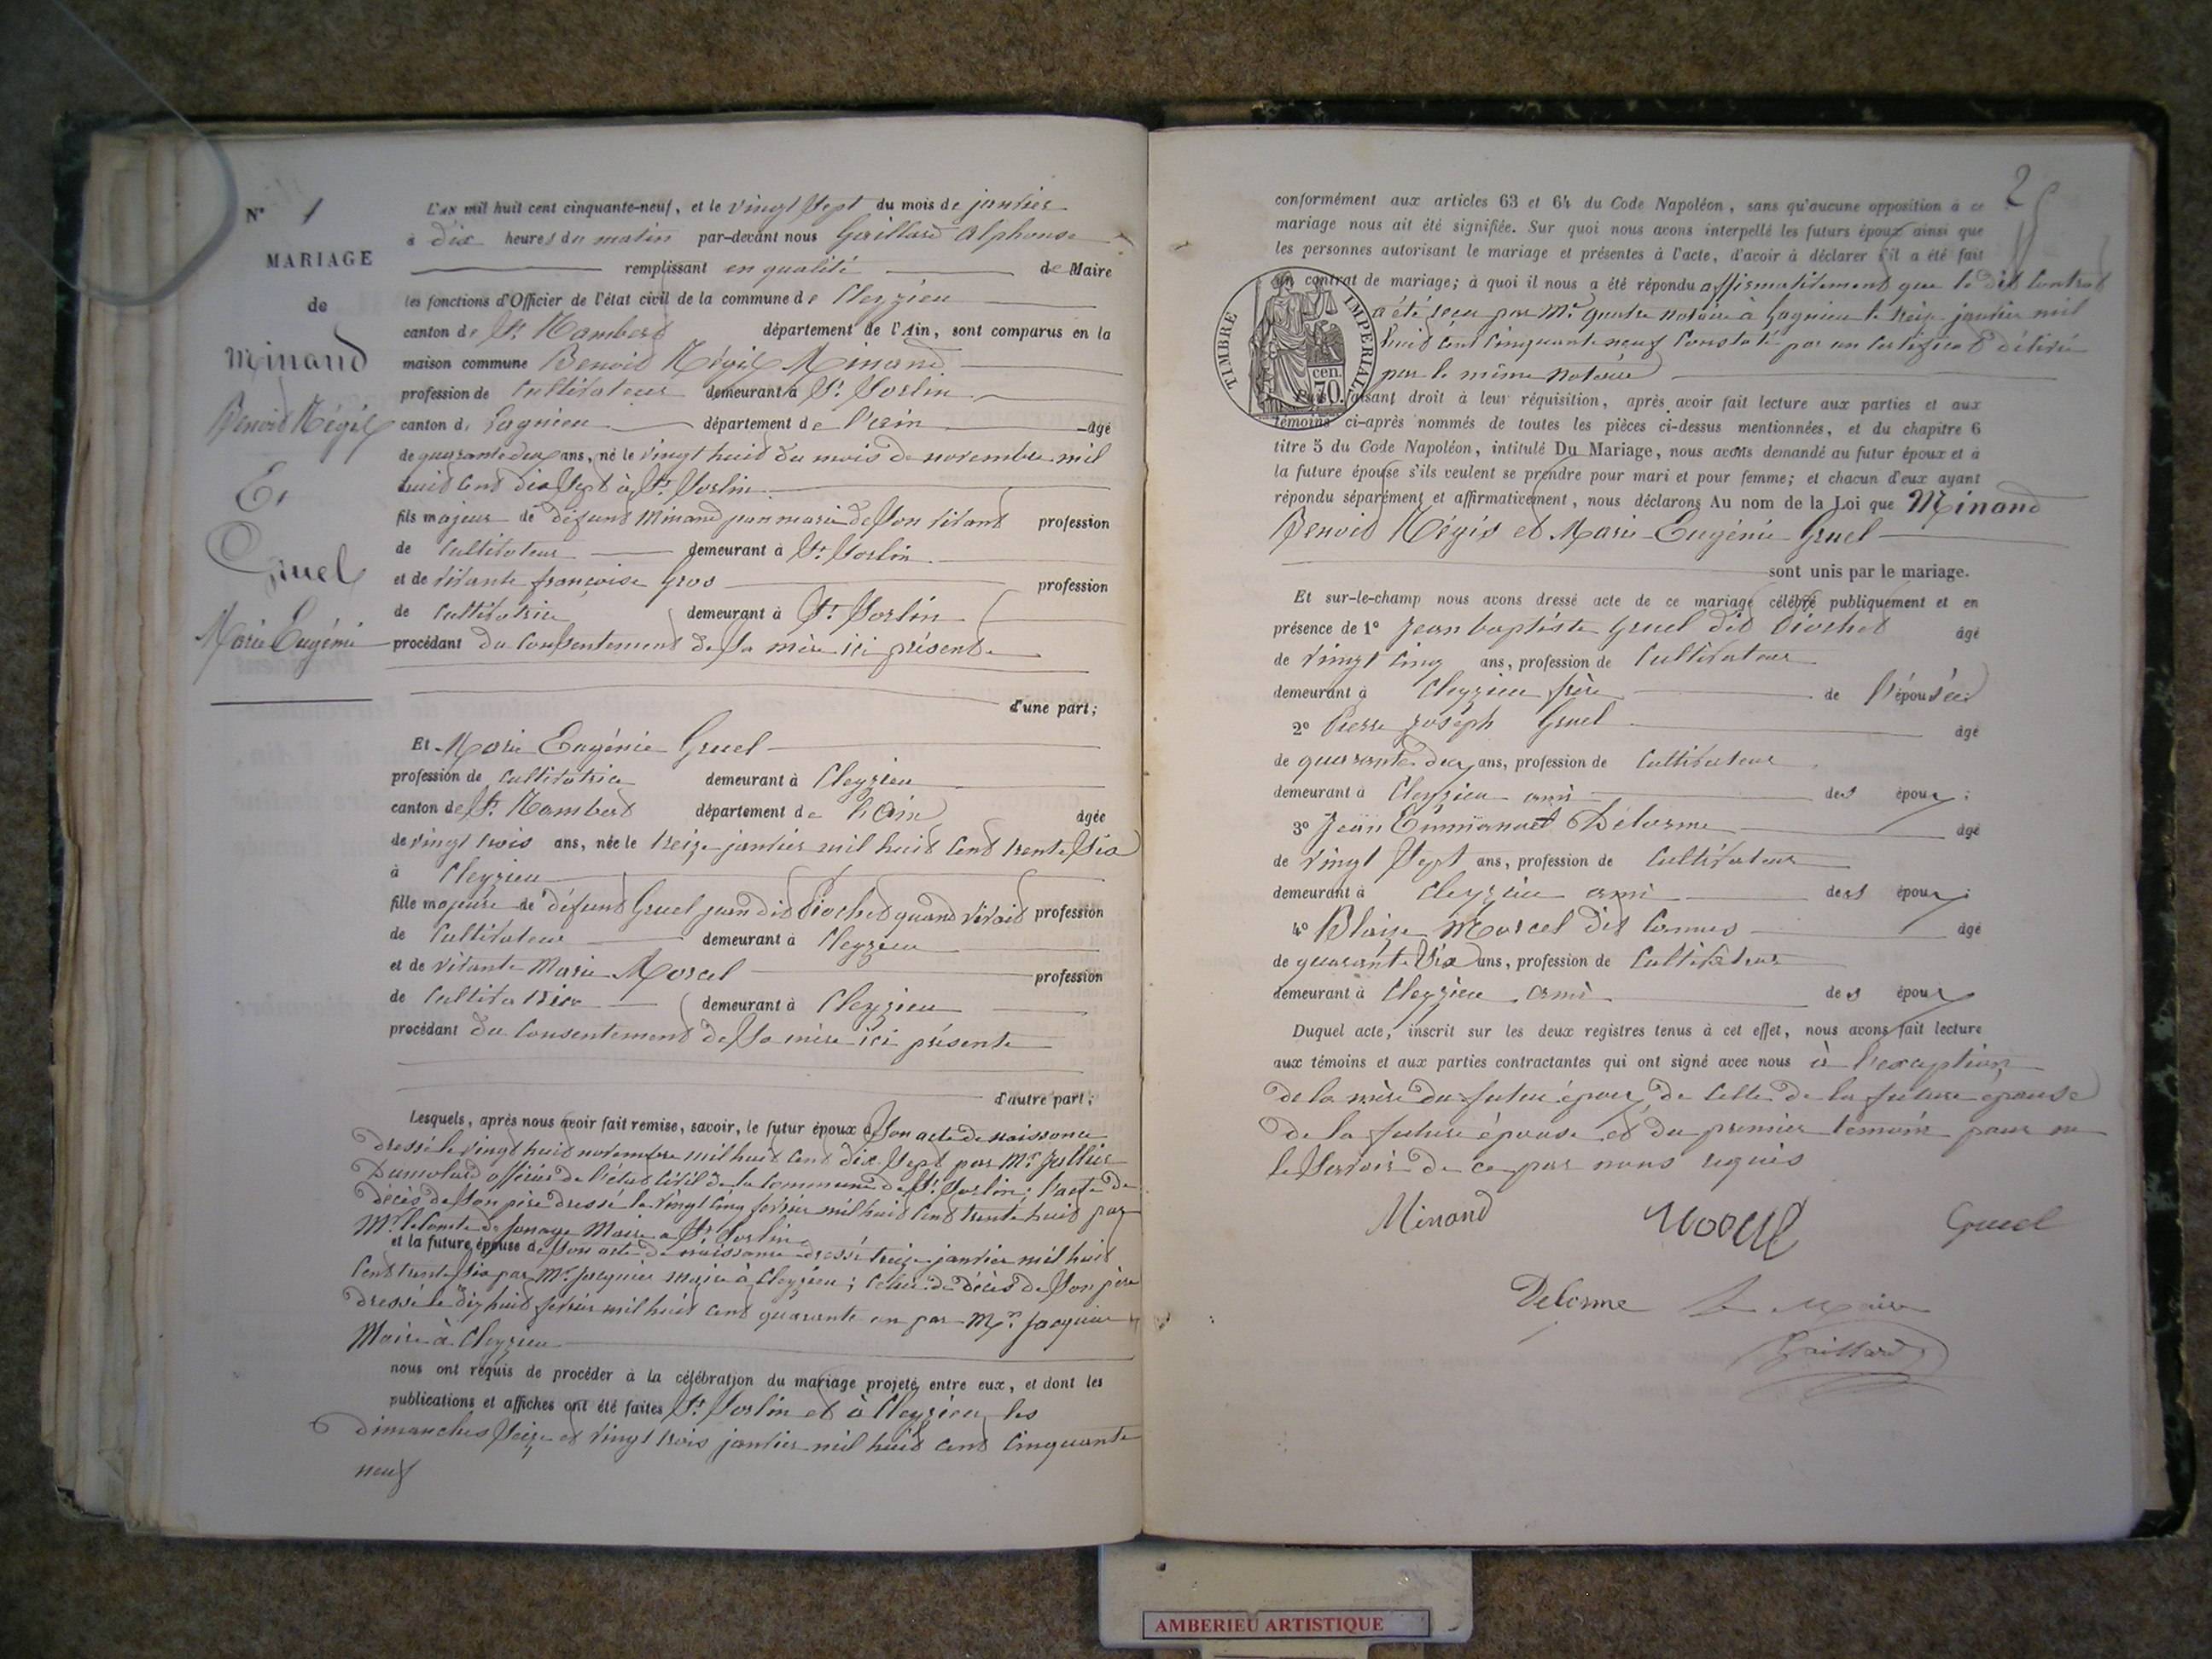 N° 1
MARIAGE
de
Minand
Benoit Régis
Et
Gruel
Marie Eugénie
L'AN mil huit cent cinquante-neuf, et le vingt sept du mois de janvier
à dix heures du matin par-devant nous Gaillard Alphonse
remplissant en qualité de Maire
les fonctions d'Officier de l'état civil de la commune de Cleyzieu
canton de St Rambert département de l'Ain, sont comparus en la
maison commune Benoit Régis Minand
profession de Cultivateur demeurant à St Sorlin
canton de Lagnieu département de l'ain âgé
de quarante deux ans, né le vingt huit du mois de novembre mil
huit cent dix sept à St Sorlin
fils majeur de défunt Minand jean marie de son vivant profession
de Cultivateur demeurant à St Sorlin
et de vivante françoise Gros profession
de Cultivatrice demeurant à St Sorlin
procédant du consentement de sa mère ici présente
d'une part;
Et Marie Eugénie Gruel
profession de Cultivatrice demeurant à Cleyzieu
canton de St Rambert département de l'ain âgée
de vingt trois ans, née le treize janvier mil huit cent trente six
à Cleyzieu
fille majeure de défunt Gruel jean dit Piochet quand vivait profession
de Cultivateur demeurant à Cleyzieu
et de vivante Marie Marcel profession
de Cultivatrice demeurant à Cleyzieu
procédant du consentement de sa mère ici présente
d'autre part;
Lesquels, après nous avoir fait remise, savoir, le futur époux de son acte de naissance
dressé le vingt huit novembre mil huit cent dix sept par Mr
Dumolard officier de l'état civil de la commune de St Sorlin; l'acte de
décès de son père dressé le vingt cinq février mil huit cent trente huit par
Mr le Comte de Maire à St Sorlin
et la future épouse de son acte de naissance dressé treize janvier mil huit
cent trente six par Mr Jacquier maire à Cleyzieu; celui de décès de son père
dressé le dix huit février mil huit cent quarante un par Mr Jacquier
Maire à Cleyzieu
nous ont requis de procéder à la célébration du mariage projeté entre eux, et dont les
publications et affiches ont été faites St Sorlin et à Cleyzieu les
dimanches seize et vingt trois janvier mil huit cent cinquante
neuf
2
conformément aux articles 63 et 64 du Code Napoléon, sans qu'aucune opposition à ce
mariage nous ait été signifiée. Sur quoi nous avons interpellé les futurs époux ainsi que
les personnes autorisant le mariage et présentes à l'acte, d'avoir à déclarer s'il a été fait
un contrat de mariage; à quoi il nous a été répondu affirmativement que le dit Contrat
a été reçu par Mr notaire à Lagnieu le treize janvier mil
huit cent cinquante neuf Constaté par un Certificat délivré
par le même Notaire
TIMBRE IMPERIAL
70 cen.
Puis faisant droit à leur réquisition, après avoir fait lecture aux parties et aux
témoins ci-après nommés de toutes les pièces ci-dessus mentionnées, et du chapitre 6
titre 5 du Code Napoléon, intitulé Du Mariage, nous avons demandé au futur époux et à
la future épouse s'ils veulent se prendre pour mari et pour femme; et chacun d'eux ayant
répondu séparément et affirmativement, nous déclarons Au nom de la Loi que Minand
Benoit Régis et Marie Eugénie Gruel
sont unis par le mariage.
Et sur-le-champ nous avons dressé acte de ce mariage célébré publiquement et en
présence de 1° Jean baptiste Gruel dit Piochet âgé
de vingt cinq ans, profession de Cultivateur
demeurant à Cleyzieu frère de l'épousée
2° Pierre Joseph Gruel âgé
de quarante deux ans, profession de Cultivateur
demeurant à Cleyzieu ami des époux;
3° Jean Emmanuel Délorme âgé
de vingt sept ans, profession de Cultivateur
demeurant à Cleyzieu ami des époux;
4° Blaize Marcel dit Camus âgé
de quarante six ans, profession de Cultivateur
demeurant à Cleyzieu ami des époux
Duquel acte, inscrit sur les deux registres tenus à cet effet, nous avons fait lecture
aux témoins et aux parties contractantes qui ont signé avec nous à l'exception
de la mère du futur époux, de celle de la future épouse
de la future épouse et du premier témoin pour ne
le savoir de ce par nous requis
Minand Gruel
Delorme le Maire
Gaillard
AMBERIEU ARTISTIQUE